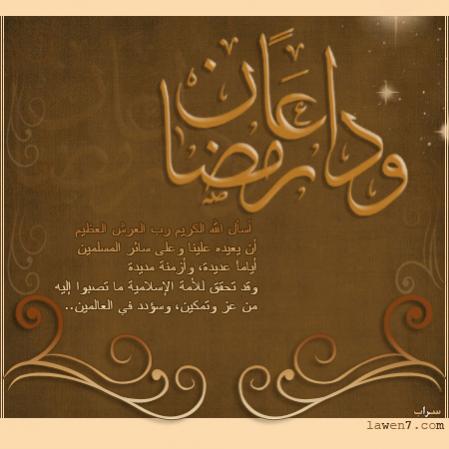 وداعاً رمضان
أسأل الله الكريم رب العرش العظيم
أن يعيده علينا وعلى سائر المسلمين
أياماً عديدة، وأزمنة مديدة
وقد تحقق للأمة الإسلامية ما تصبوا إليه
من عز وتمكين، وسؤدد في العالمين..
سراب
lawen7.com